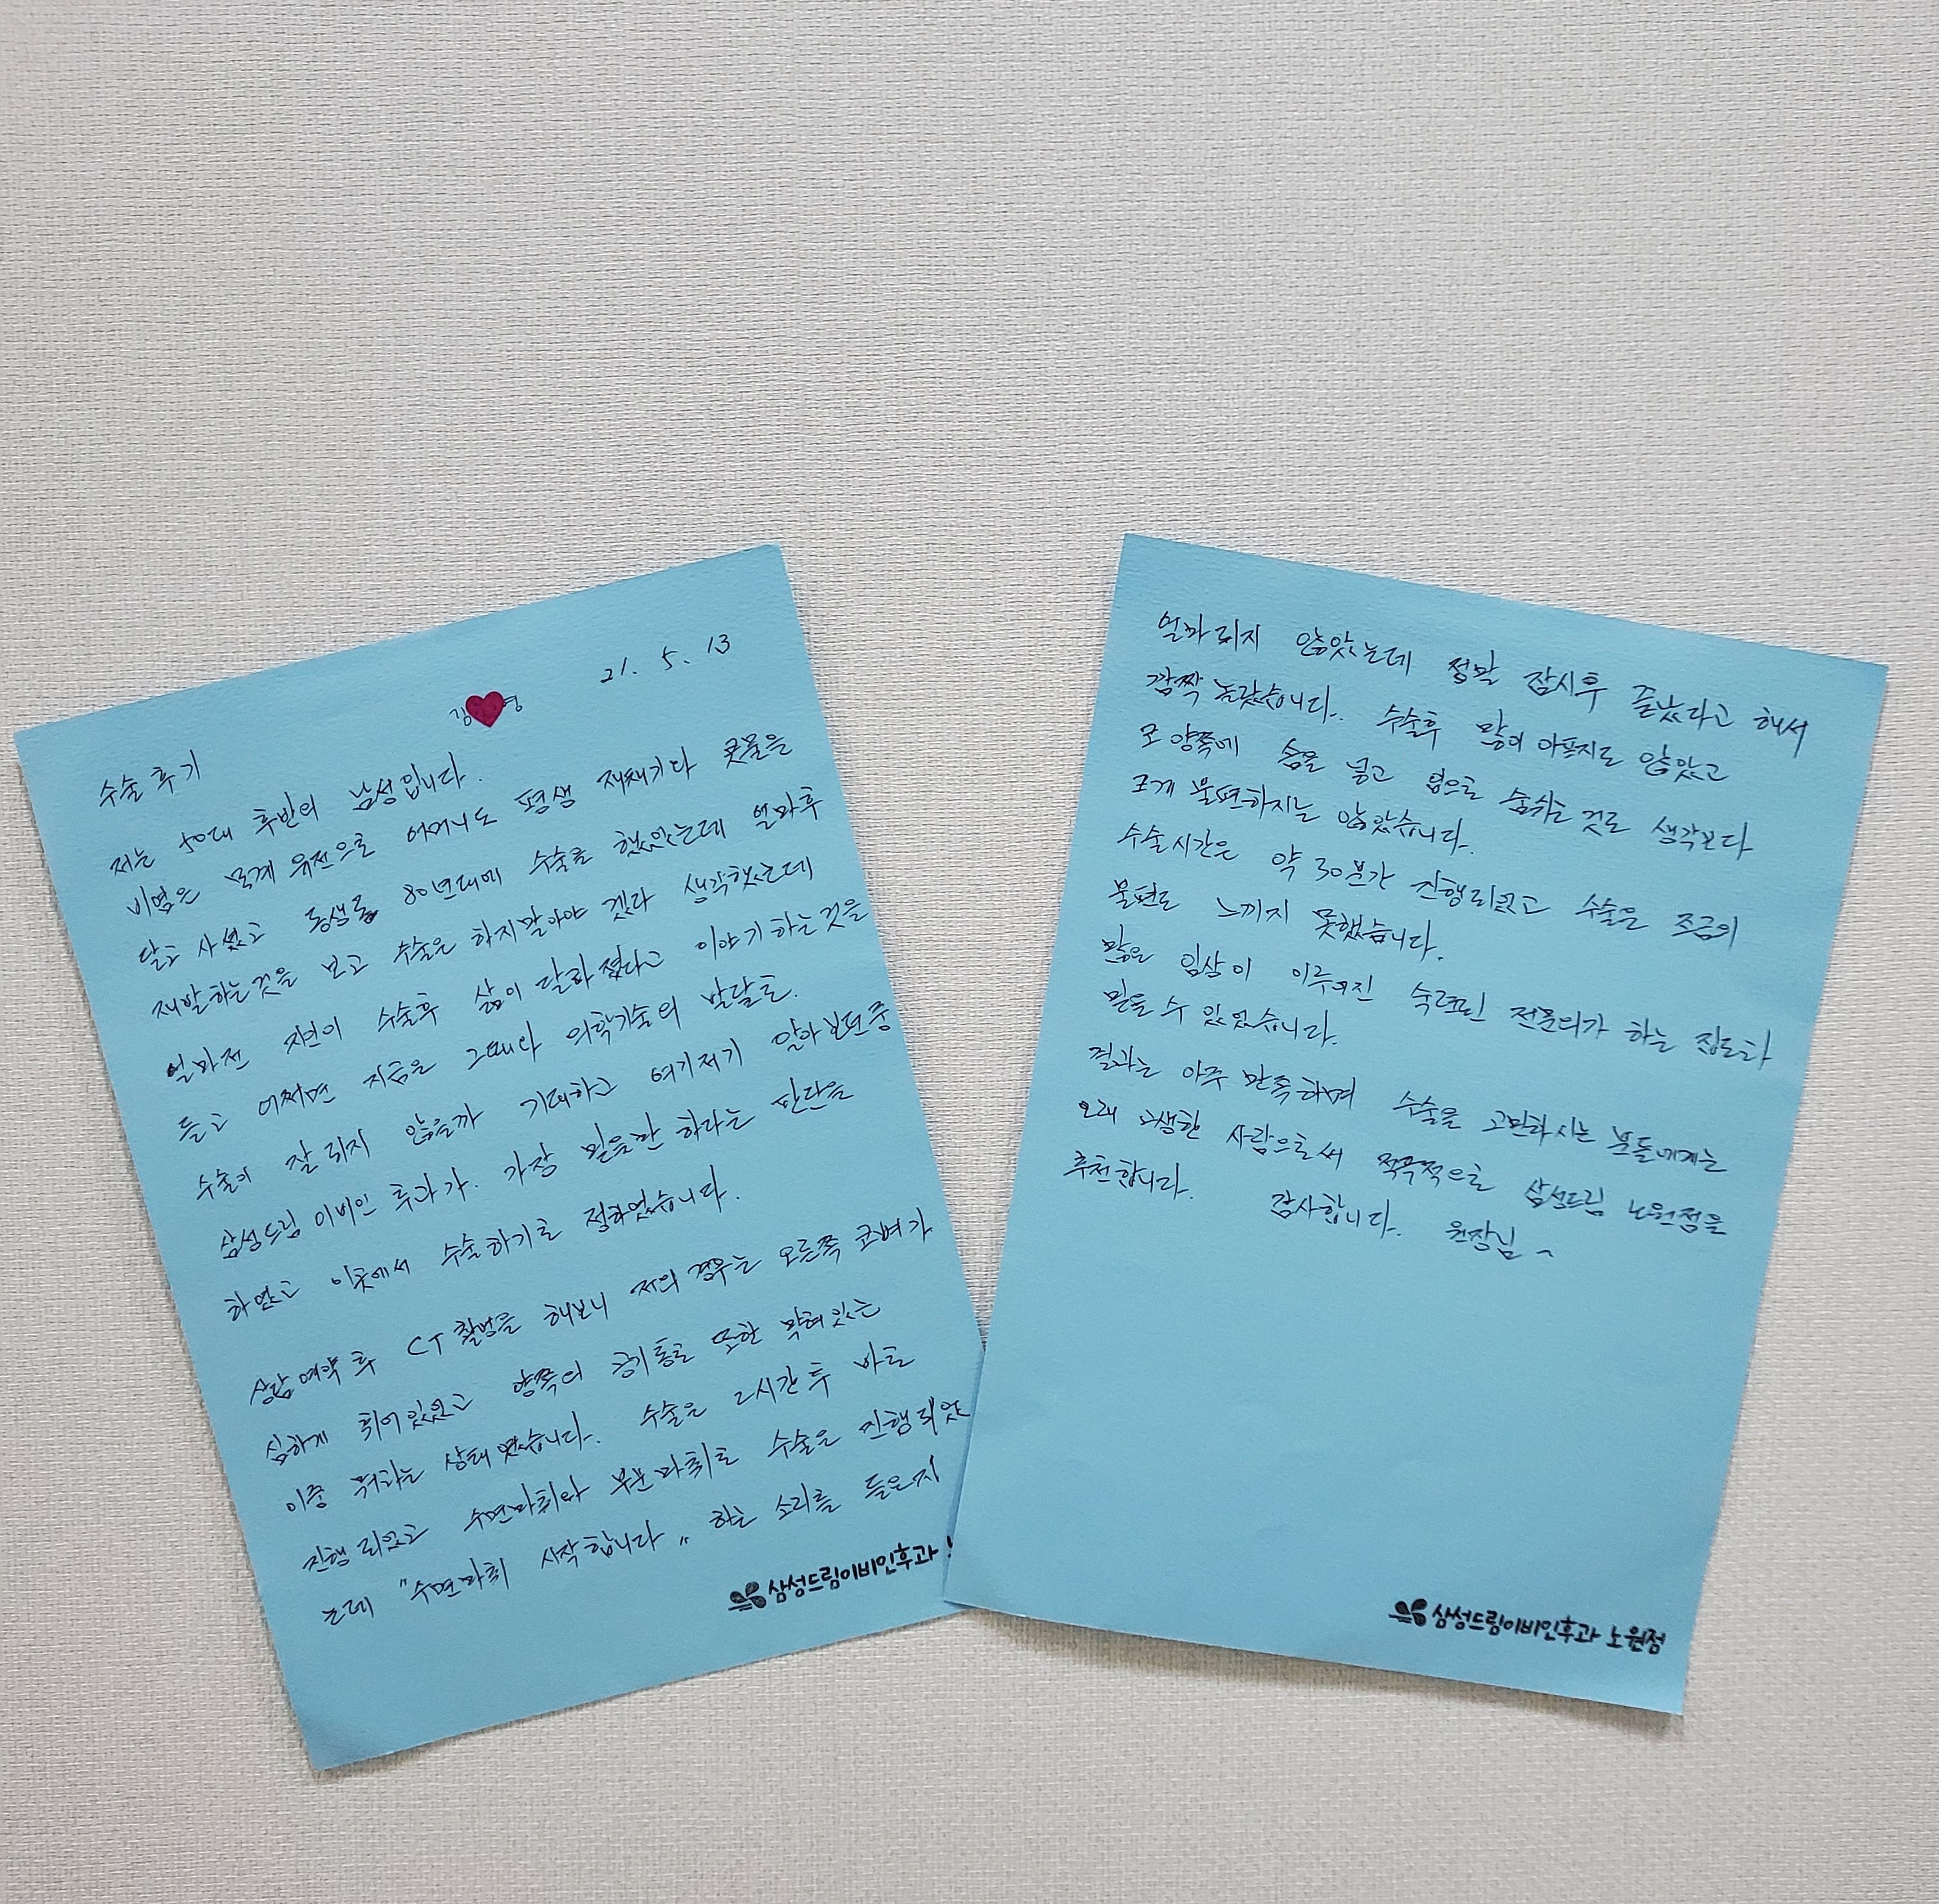 21. 5. 13
김 영
수술후기
저는 50대 후반의 남성입니다.
비염은 모계 유전으로 어머니도 평생 재채기와 콧물을
달고 사셨고 동생도 80년대에 수술을 했었는데 얼마후
재발하는것을 보고 수술은 하지말아야 겠다 생각했는데
얼마전 지인이 수술후 삶이 달라졌다고 이야기 하는것을
듣고 어쩌면 지금은 그때와 의학기술의 발달로.
수술이 잘 되지 않을까 기대하고 여기저기 알아보던중
삼성드림 이비인 후과가. 가장 믿을만 하다는 판단을
하였고 이곳에서 수술하기로 정하였습니다.
상담예약 후 CT촬영을 해보니 저의 경우는 오른쪽 코뼈가
심하게 휘어있었고 양쪽의 공기통로 또한 막혀있는
이중 상태였습니다. 수술은 2시간후 바로
진행되었고 수면마취와 부분마취로 수술은 진행되었
는데 "수면마취 시작합니다" 하는 소리를 들은지
삼성드림이비인후과
얼마되지 않았는데 정말 잠시후 끝났다고 해서
깜짝 놀랐습니다. 수술후 많이 아프지도 않았고
코 양쪽에 솜을 넣고 입으로 숨쉬는 것도 생각보다
크게 불편하지는 않았습니다.
수술시간은 약 30분간 진행되었고 수술은 조금의
불편도 느끼지 못했습니다.
많은 임상이 이루어진 숙련된 전문의가 하는 집도라
믿을 수 있었습니다.
결과는 아주 만족하며 수술을 고민하시는 분들에게는
오래 고생한 사람으로써 적극적으로 삼성드림 노원점을
추천합니다. 감사합니다. 원장님~
삼성드림이비인후과 노원점